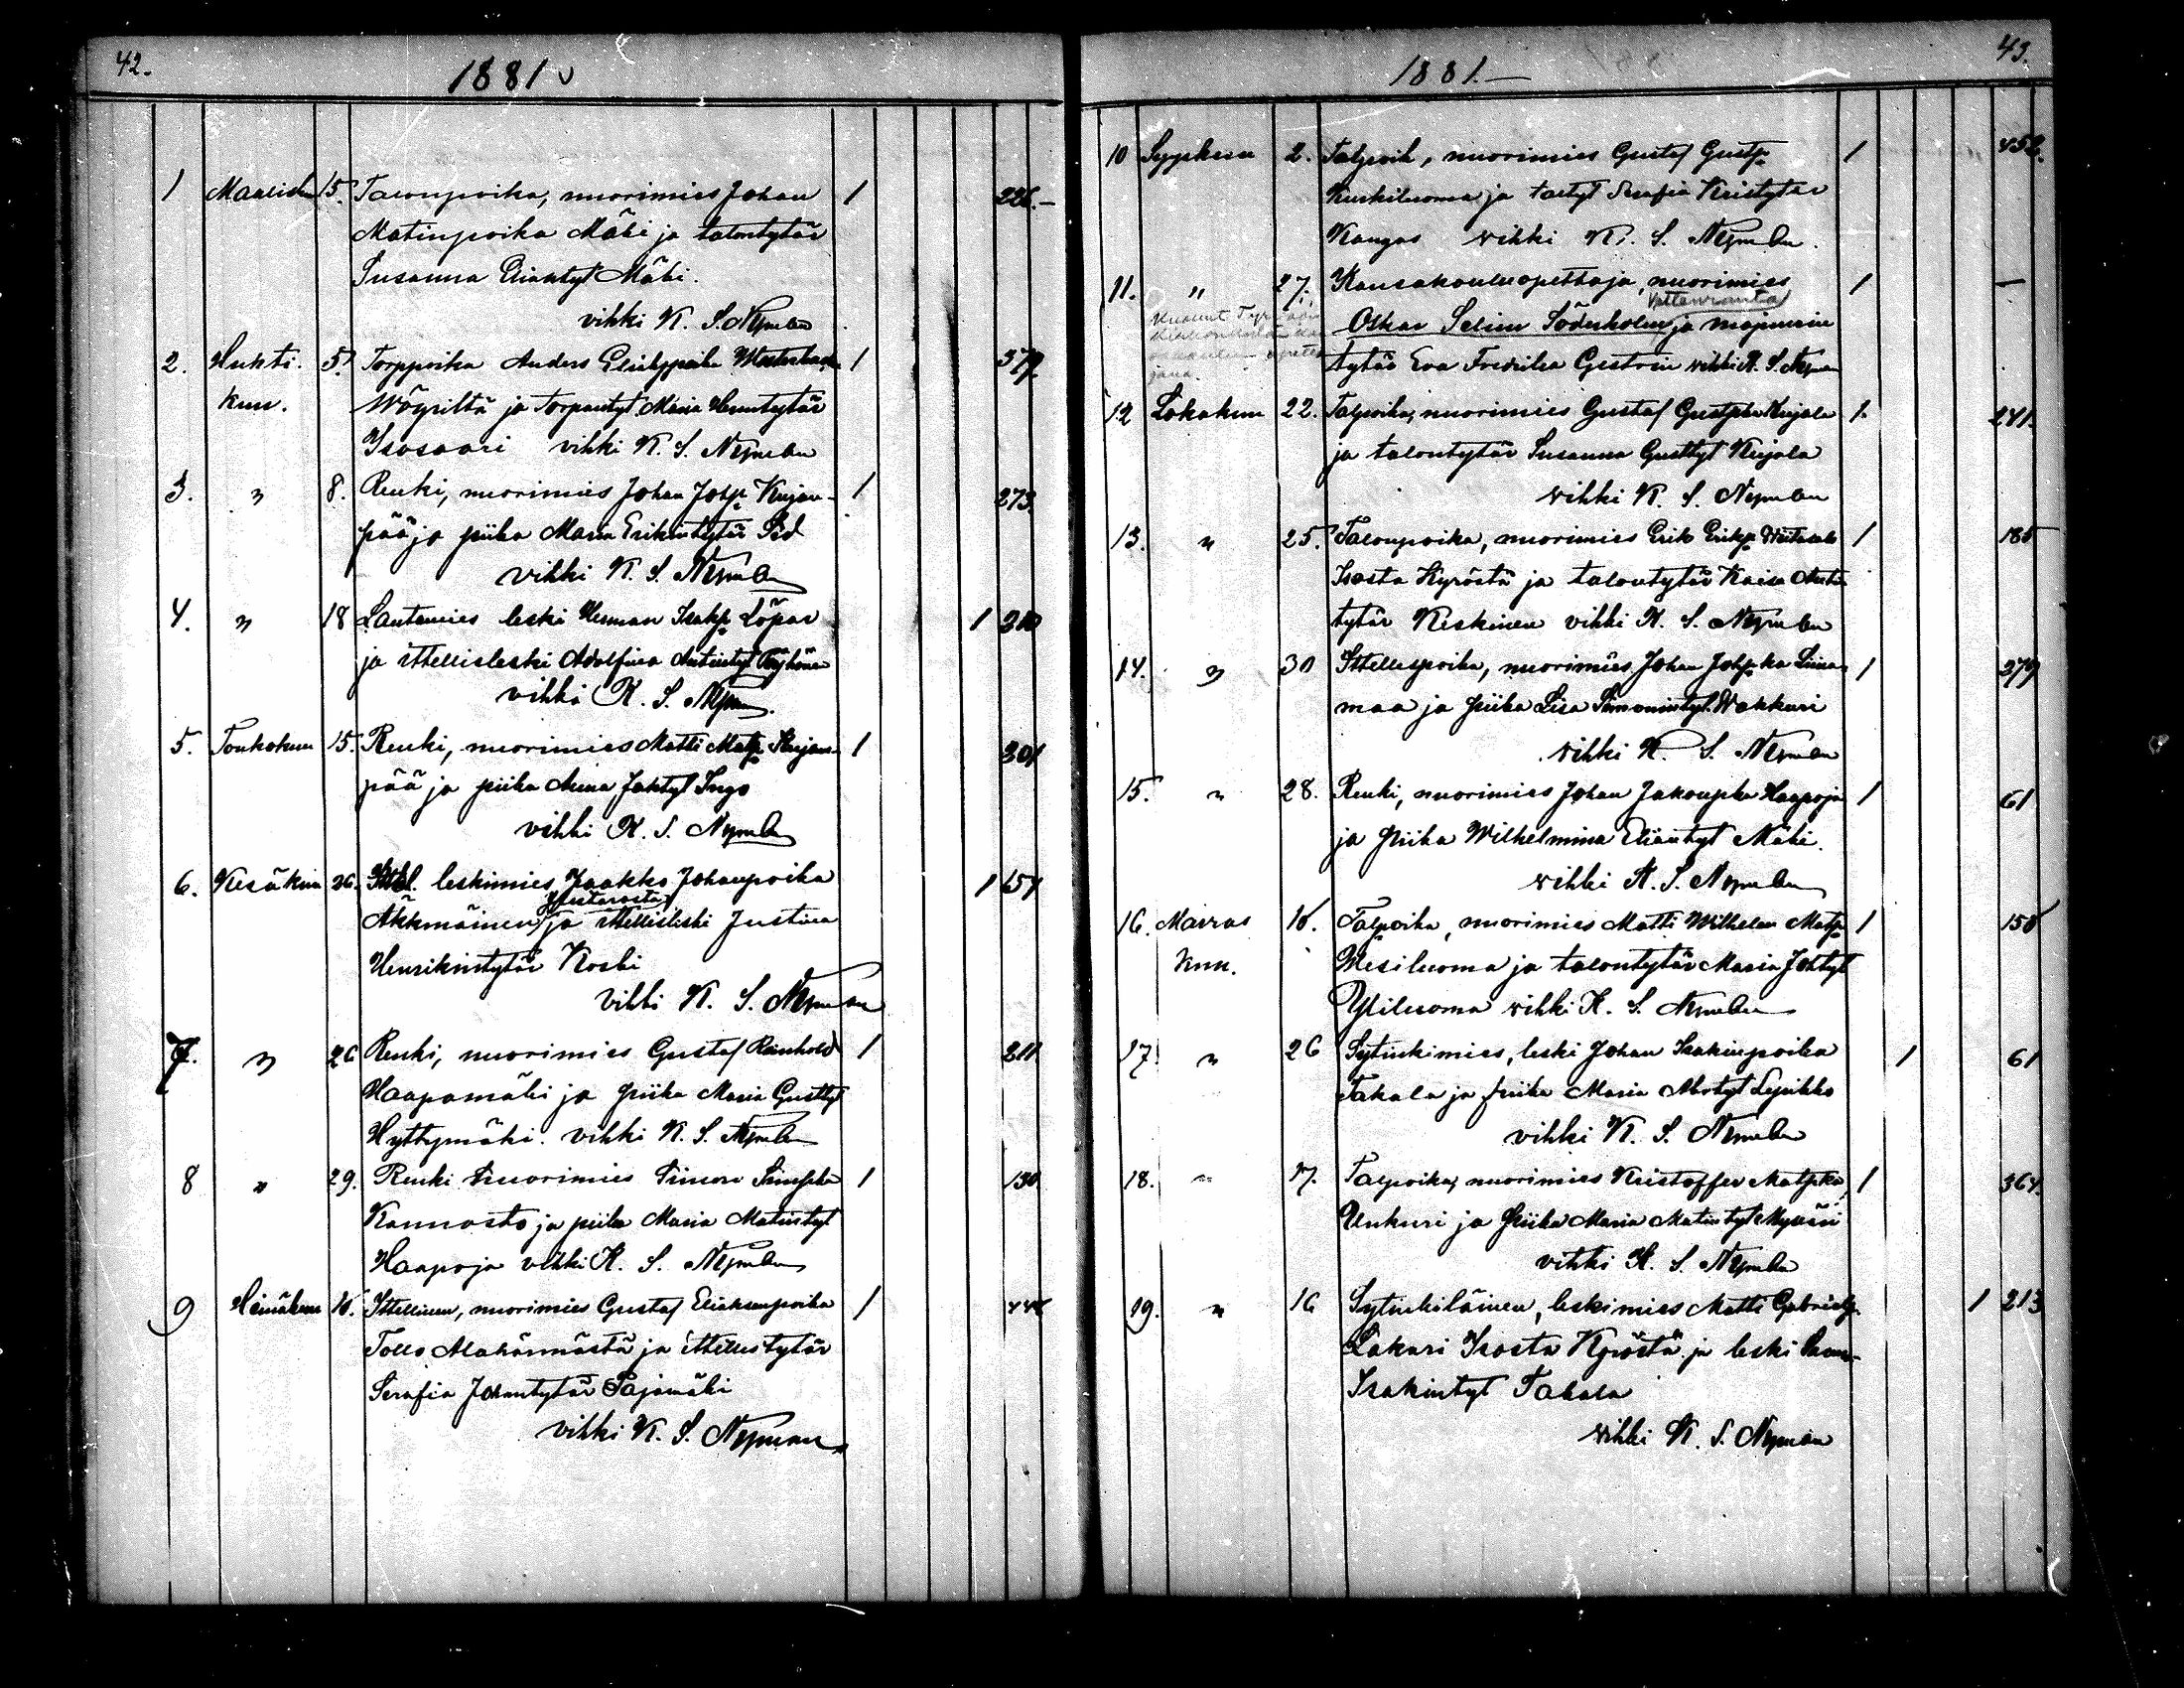 42.
1881
1 Maalisk 15. Talonpoika, nuorimies Johan 1 226.
Matinpoika Mäki ja talontytär
Susanna Eliantyt Mäki.
vihki K. S. Nyman
2. Huhti- 5. Torppoika Anders 1 379.
kuu. Wöyriltä ja Torpantyt Maria Henntytär
Isosaari vihki K. S. Nyman
3. " 8. Renki, nuorimies Johan Johp Kujan- 1 273.
pää ja piika Maria Erikintytär
vihki K. S. Nyman
4. " 18 Lautamies leski Herman Isakp Löpar 1
ja ittellisleski Adolfina Antintyt
vihki K. S. Nyman
5. Toukokuu 15. Renki, nuorimies Matti Matp Kujan- 1 301
pää ja piika Anna Jaktyt Ingo
vihki K. S. Nyman
6. Kesäkuu 26. Ittel. leskimies Jaakko Johanpoika 1
Äkkmäinen ja ittellisleski Justina
Henrikintytär Koski
vihki K. S. Nyman
7. " 26 Renki, nuorimies Gustaf Reinhold 1 211
Haapamäki ja piika Maria Gusttyt
Hyttymäki. vihki K. S. Nyman
8 " 29. Renki nuorimies Simon Simpka 1 130
Kannosto ja piika Maria Matintyt
Haapoja vihki K. S. Nyman
9 Heinäkuu 16. Ittellinen, nuorimies Gustaf Eliaksenpoika 1
Tollo Alahärmästä ja ittellistytär
Serafia Johantytär Pajamäki
vihki K. S. Nyman
43.
1881.
10 Syyskuu 2. Talpoik, nuorimies Gustaf Gustp 1 452.
Kuskiluoma ja taltyt Serafia Kristytär
Kangas vihki K. S. Nyman.
11. " 27. Kansakouluopettaja, nuorimies 1 —
Oskar Selim Söderholm ja majurin
tytär Eva Fredrika Gestrin vihki K. S. Nyman
12 Lokakuu 22. Talpoika, nuorimies Gustaf Gustpka Kujala 1. 241.
ja talontytär Susanna Gusttyt Kujala
vihki K. S. Nyman
13. " 25. Talonpoika, nuorimies Erik Erikp 1 185
Isosta Kyröstä ja talontytär Kaisa Antin
tytär Keskinen vihki K. S. Nyman
14. " 30 Ittellispoika, nuorimies Johan Johpka Liina- 1 279
maa ja piika Lisa Simonintyt Wakkuri
vihki K. S. Nyman
15. " 28. Renki, nuorimies Johan Jakoupka Haapoja 1 61
ja piika Wilhelmina Eliantyt Mäki.
vihki K. S. Nyman
16. Marras- Talpoika, nuorimies Matti Wilhelm Matp 1
kuu. Wesiluoma ja talontytär Maria Johtyt
Yliluoma vihki K. S. Nyman
17. " 26 Sytinkimies, leski Johan Isakinpoika 1 61
Takala ja piika Maria Abrtyt Lepikko
vihki K. S. Nyman
18. " Talpoika, nuorimies Kristoffer Matpka 1 364.
Unkuri ja piika Maria Matintyt Mylläri
vihki K. S. Nyman
19. " 16 Sytinkiläinen, leskimies Matti Gabrielp. 1 213
Lakari Isosta Kyröstä ja leski
Isakintyt Takala
vihki K. S. Nyman